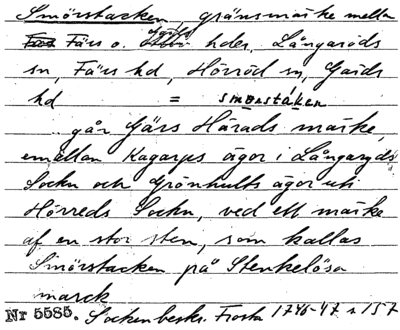 Smörstacken, gränsmärke mella
Färs o. Gärds hder. Långaröds
sn, Färs hd, Hörröd sn, Gärds
hd = smørstáken
går Gärs Härads märke,
emellan Kagarps ägor i Långaryds
Sockn och Grönhults ägor uti
Hörreds Sockn, ved ett märke
af en stor sten, som kallas
Smörstacken på Stenkelösa
marck
Nr 5585. Sockenbeskr. Frosta 1746-47 s 157